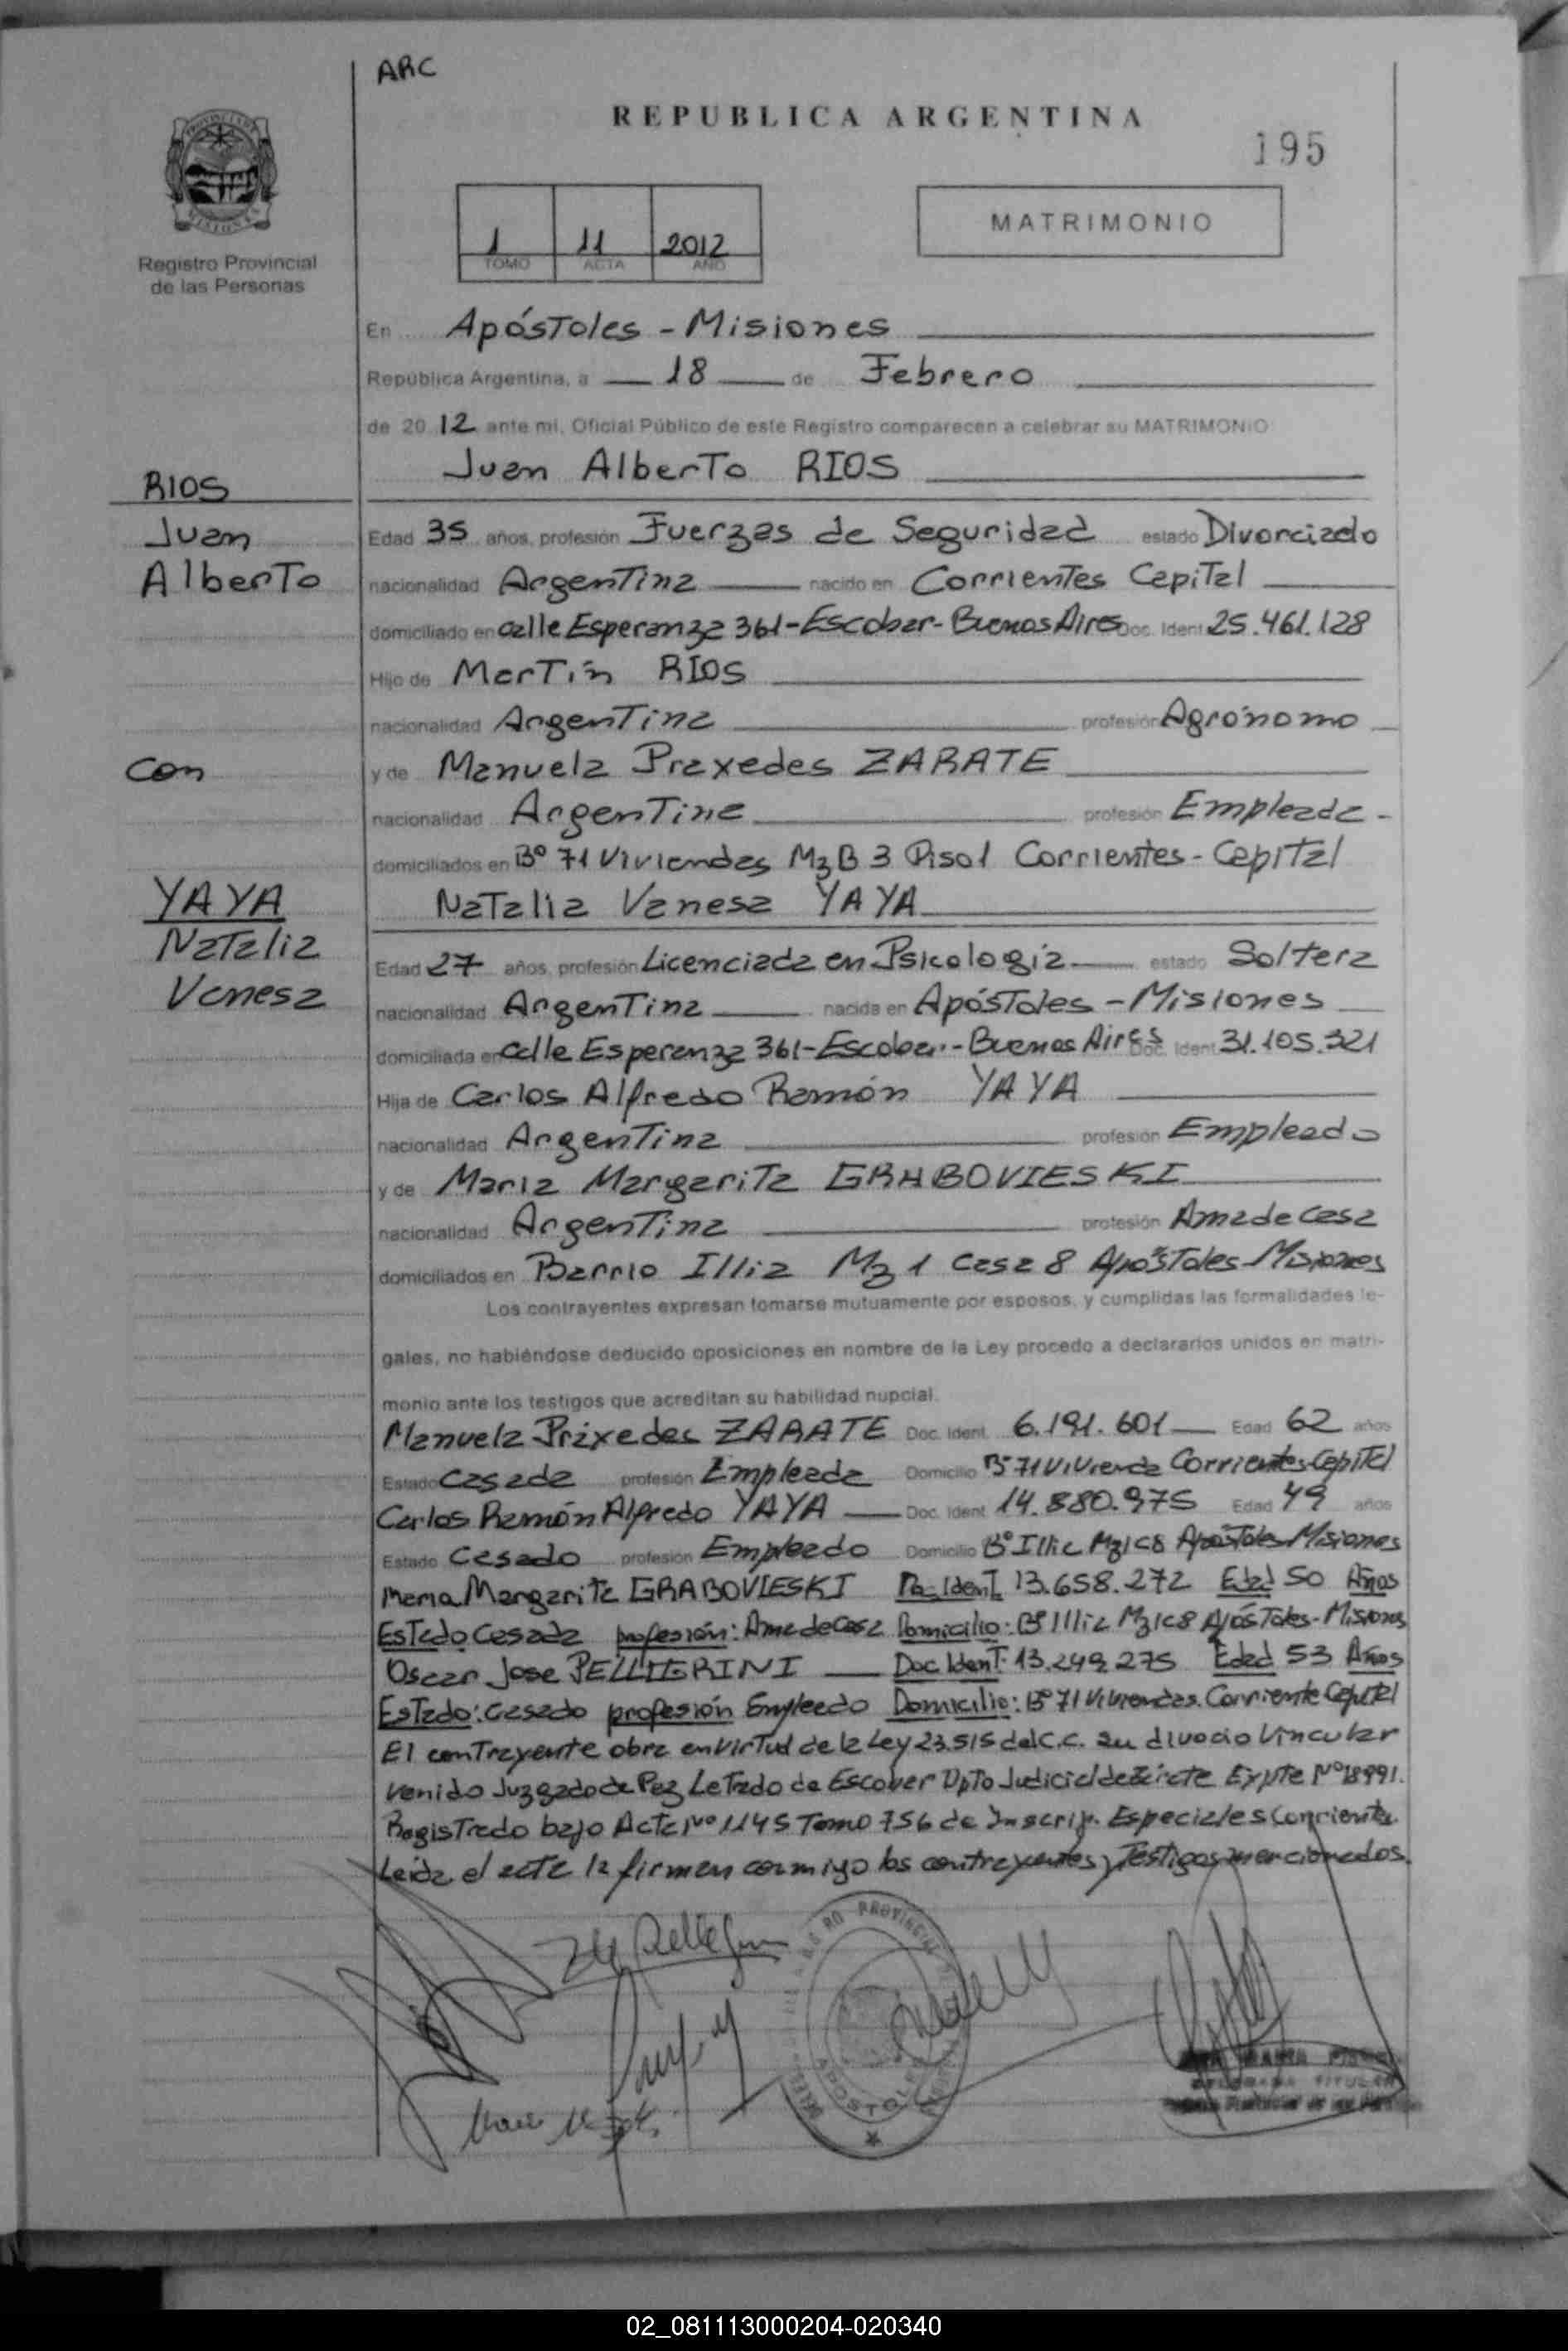 ARC
REPUBLICA ARGENTINA
195
1 11 2012
TOMO ACTA AÑO
MATRIMONIO
Registro Provincial
de las Personas
En Apóstoles - Misiones
República Argentina, a 18 de Febrero
de 2012 ante mi, Oficial Público de este Registro comparecen a celebrar su MATRIMONIO:
Juan Alberto RIOS
RIOS
Juan
Alberto
con
YAYA
Natalia
Vanesa
Edad 35 años, profesión Fuerzas de Seguridad estado Divorciado
nacionalidad Argentina nacido en Corrientes Capital
domiciliado en calle Esperanza 361-Escobar-Buenos Aires Doc. Ident. 25.461.128
Hijo de Martín RIOS
nacionalidad Argentina profesión Agrónomo
y de Manuela Praxedes ZARATE
nacionalidad Argentina profesión Empleada -
domiciliados en Bº 71 Viviendas Mz B 3 Piso 1 Corrientes - Capital
Natalia Vanesa YAYA
Edad 27 años, profesión Licenciada en Psicología estado Soltera
nacionalidad Argentina nacida en Apóstoles - Misiones
domiciliada en calle Esperanza 361-Escobar-Buenos Aires Doc. Ident. 31.105.321
Hija de Carlos Alfredo Ramón YAYA
nacionalidad Argentina profesión Empleado
y de María Margarita GRABOVIESKI
nacionalidad Argentina profesión Ama de casa
domiciliados en Barrio Illia Mz 1 casa 8 Apóstoles-Misiones
Los contrayentes expresan tomarse mutuamente por esposos, y cumplidas las formalidades le-
gales, no habiéndose deducido oposiciones en nombre de la Ley procedo a declararlos unidos en matri-
monio ante los testigos que acreditan su habilidad nupcial.
Manuela Práxedes ZARATE Doc. Ident. 6.191.601 Edad 62 años
Estado Casada profesión Empleada Domicilio Bº 71 Vivienda Corrientes-Capital
Carlos Ramón Alfredo YAYA Doc. Ident. 14.880.975 Edad 49 años
Estado Casado profesión Empleado Domicilio Bº Illia Mz1 C8 Apóstoles-Misiones
Maria Margarita GRABOVIESKI Doc Ident. 13.658.272 Edad 50 Años
Estado Casada profesión: Ama de Casa Domicilio: Bº Illia Mz1 C8 Apóstoles-Misiones
Oscar Jose PELLEGRINI Doc Ident. 13.249.275 Edad 53 Años
Estado: Casado profesión Empleado Domicilio: Bº 71 Viviendas. Corriente Capital
El contrayente obra en virtud de la Ley 23.515 del C.C. su divocio Vincular
venido Juzgado de Paz Letrado de Escobar Dpto Judicial de Expte Nº 18991.
Registrado bajo Acta Nº 1145 Tomo 756 de Inscrip. Especiales Corrientes.
Leída el acta la firman conmigo los contrayentes y Testigos mencionados.
02_081113000204-020340